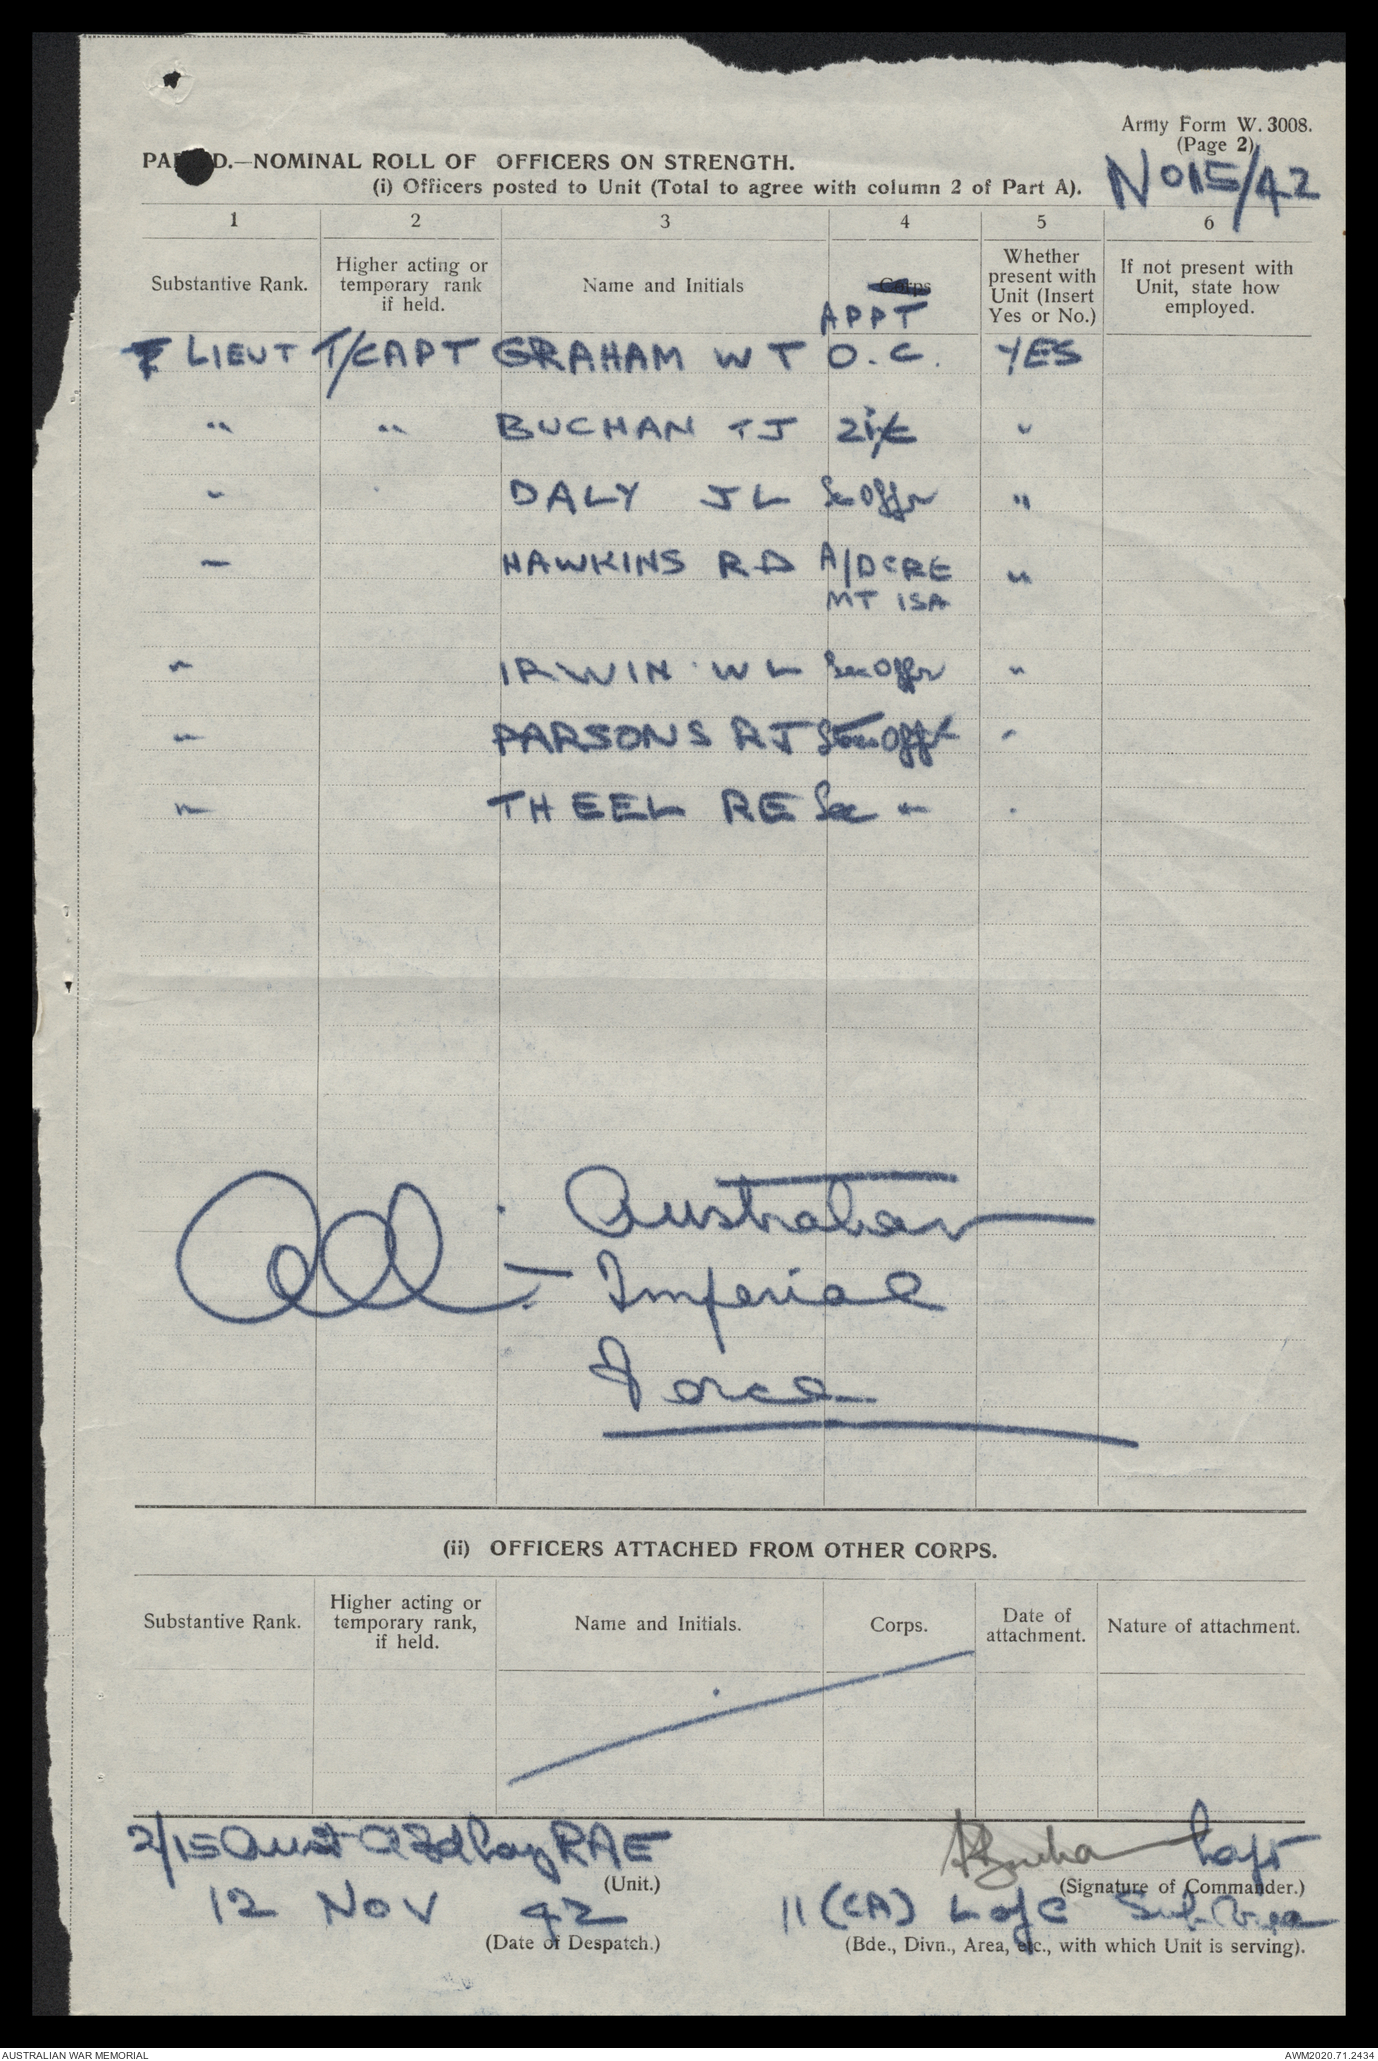 Army Form W. 3008.
(Page 2)
No 15/42
PA D.—NOMINAL ROLL OF OFFICERS ON STRENGTH.
(i) Officers posted to Unit (Total to agree with column 2 of Part A).
1 2 3 4 5 6
Substantive Rank. Higher acting or temporary rank if held. Name and Initials Corps APPT Whether present with Unit (Insert Yes or No.) If not present with Unit, state how employed.
LIEUT T/CAPT GRAHAM W T O.C. YES
" " BUCHAN T J 2i/c "
" DALY J L Sec Offr "
" HAWKINS R D A/DCRE "
MT ISA
" IRWIN W L Sec Offr "
" PARSONS R J Sec Offr "
" THEEL R E Sec " "
All : Australian
Imperial
Force
(ii) OFFICERS ATTACHED FROM OTHER CORPS.
Substantive Rank. Higher acting or temporary rank, if held. Name and Initials. Corps. Date of attachment. Nature of attachment.
2/15 Aust Fd Coy RAE Capt
(Unit.) (Signature of Commander.)
12 NOV 42 11 (CA) L of C Sub Area
(Date of Despatch.) (Bde., Divn., Area, etc., with which Unit is serving).
AUSTRALIAN WAR MEMORIAL AWM2020.71.2434